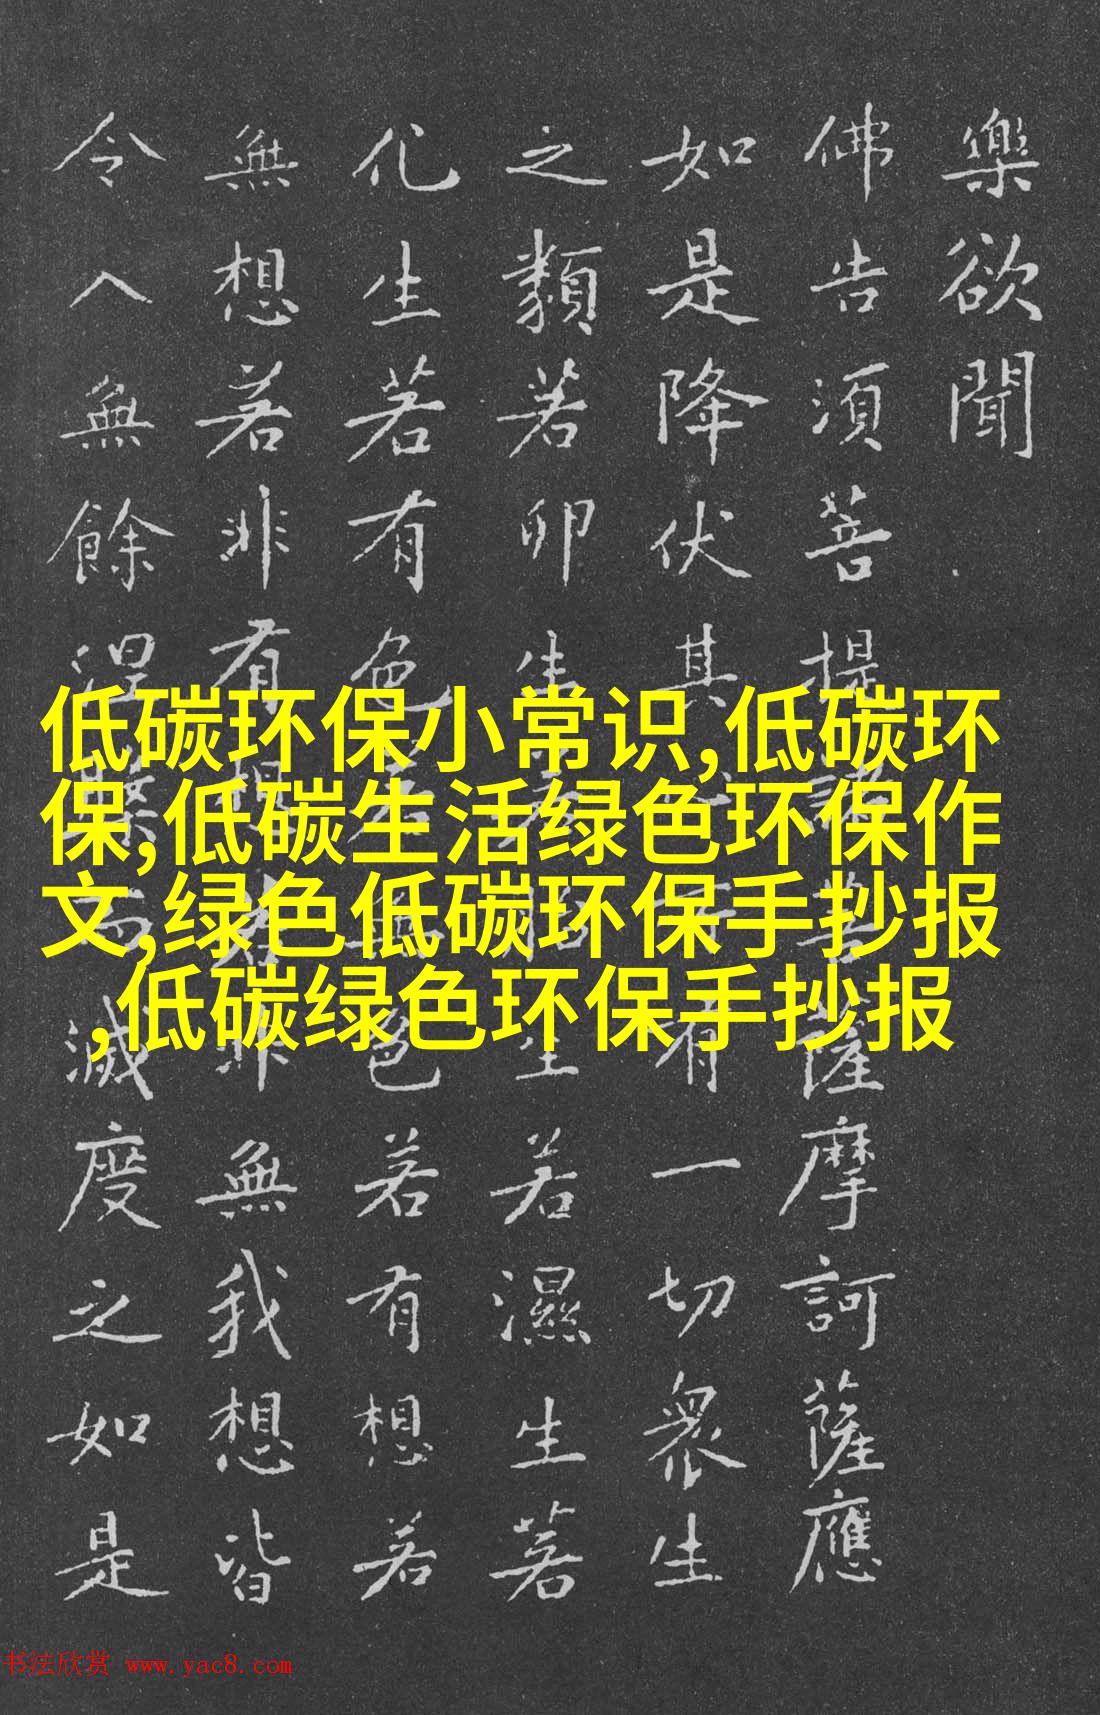 樂欲聞
佛告須菩提諸菩薩摩訶薩應
如是降伏其有一切衆生
之類若卵生若生若濕生若
化生若有色若無色若有想若
無想若非有想若非無我想皆
令入無餘涅槃而滅度之如是
低碳环保小常识,低碳环
保,低碳生活绿色环保作
文,绿色低碳环保手抄报
,低碳绿色环保手抄报
书法欣赏 www.yac8.com